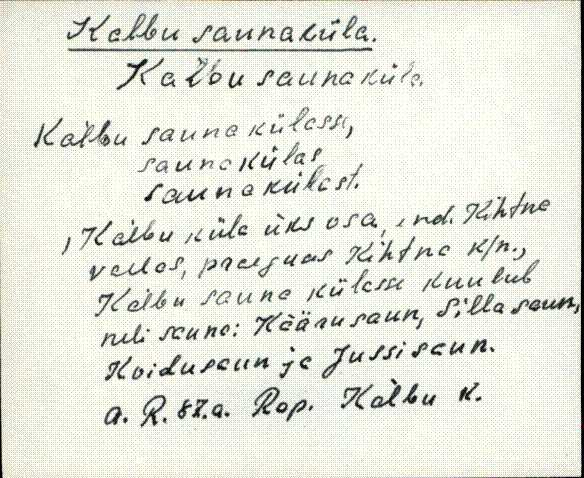 Kalbu saunaküla.
Kalbu saunaküla.
Kalbu saunakülasse,
saunakülas
saunakülast.
, Kalbu küla üks osa, end. Kihtna
vallas, praeguas Kihtna k/n.,
Kalbu sauna külasse kuulub
neli sauna: Käärusaun, Sillasaun,
Koidusaun ja Jussisaun.
A. R. 87.a. Rap. Kalbu k.